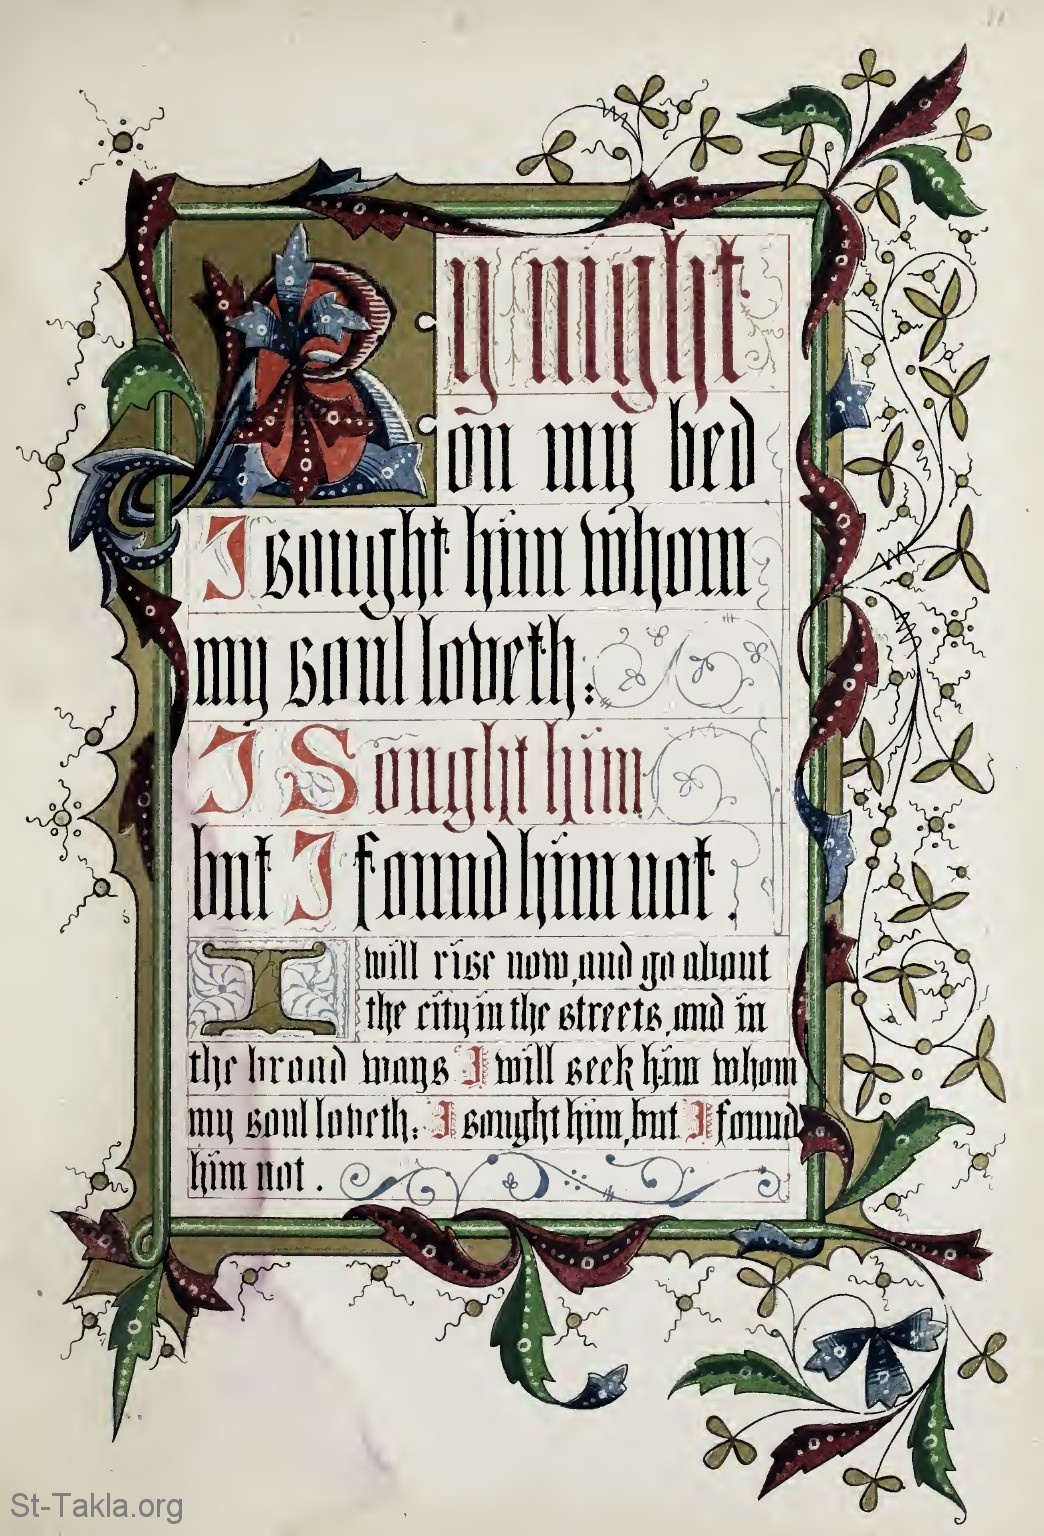 By night
on my bed
I sought him whom
my soul loveth:
I Sought him
but I found him not.
I will rise now, and go about
the city in the streets, and in
the broad ways I will seek him whom
my soul loveth: I sought him, but I found
him not.
St-Takla.org